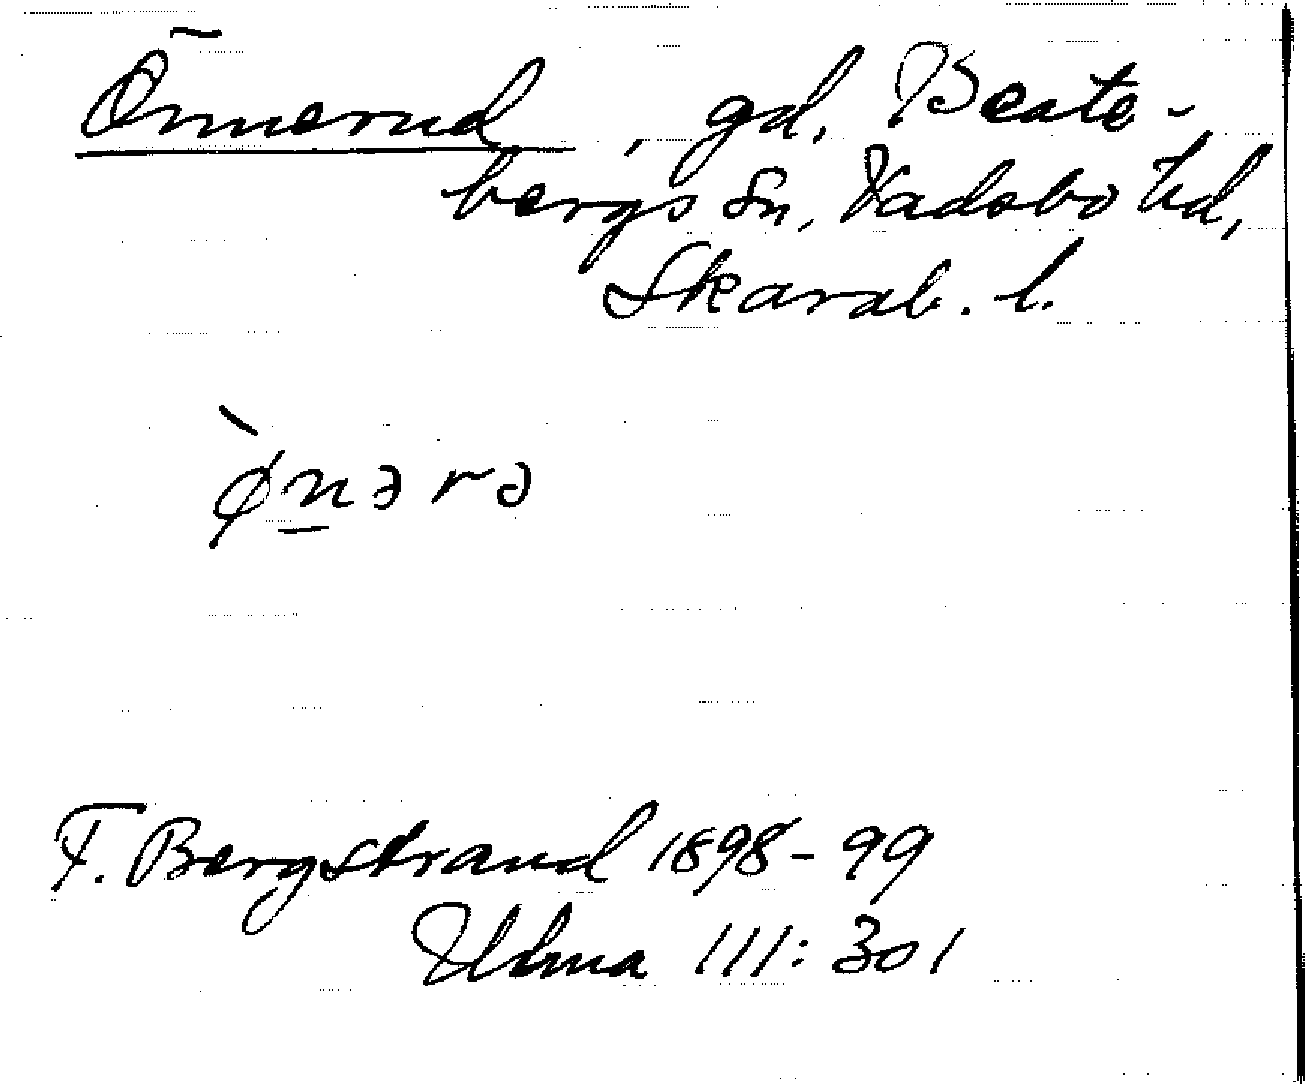 Önnerud, gd, Beate-
bergs sn, Vadsbo hd,
Skarab. l.
ø̀n̲ərə
F. Bergstrand 1898-99
Ulma 111:301